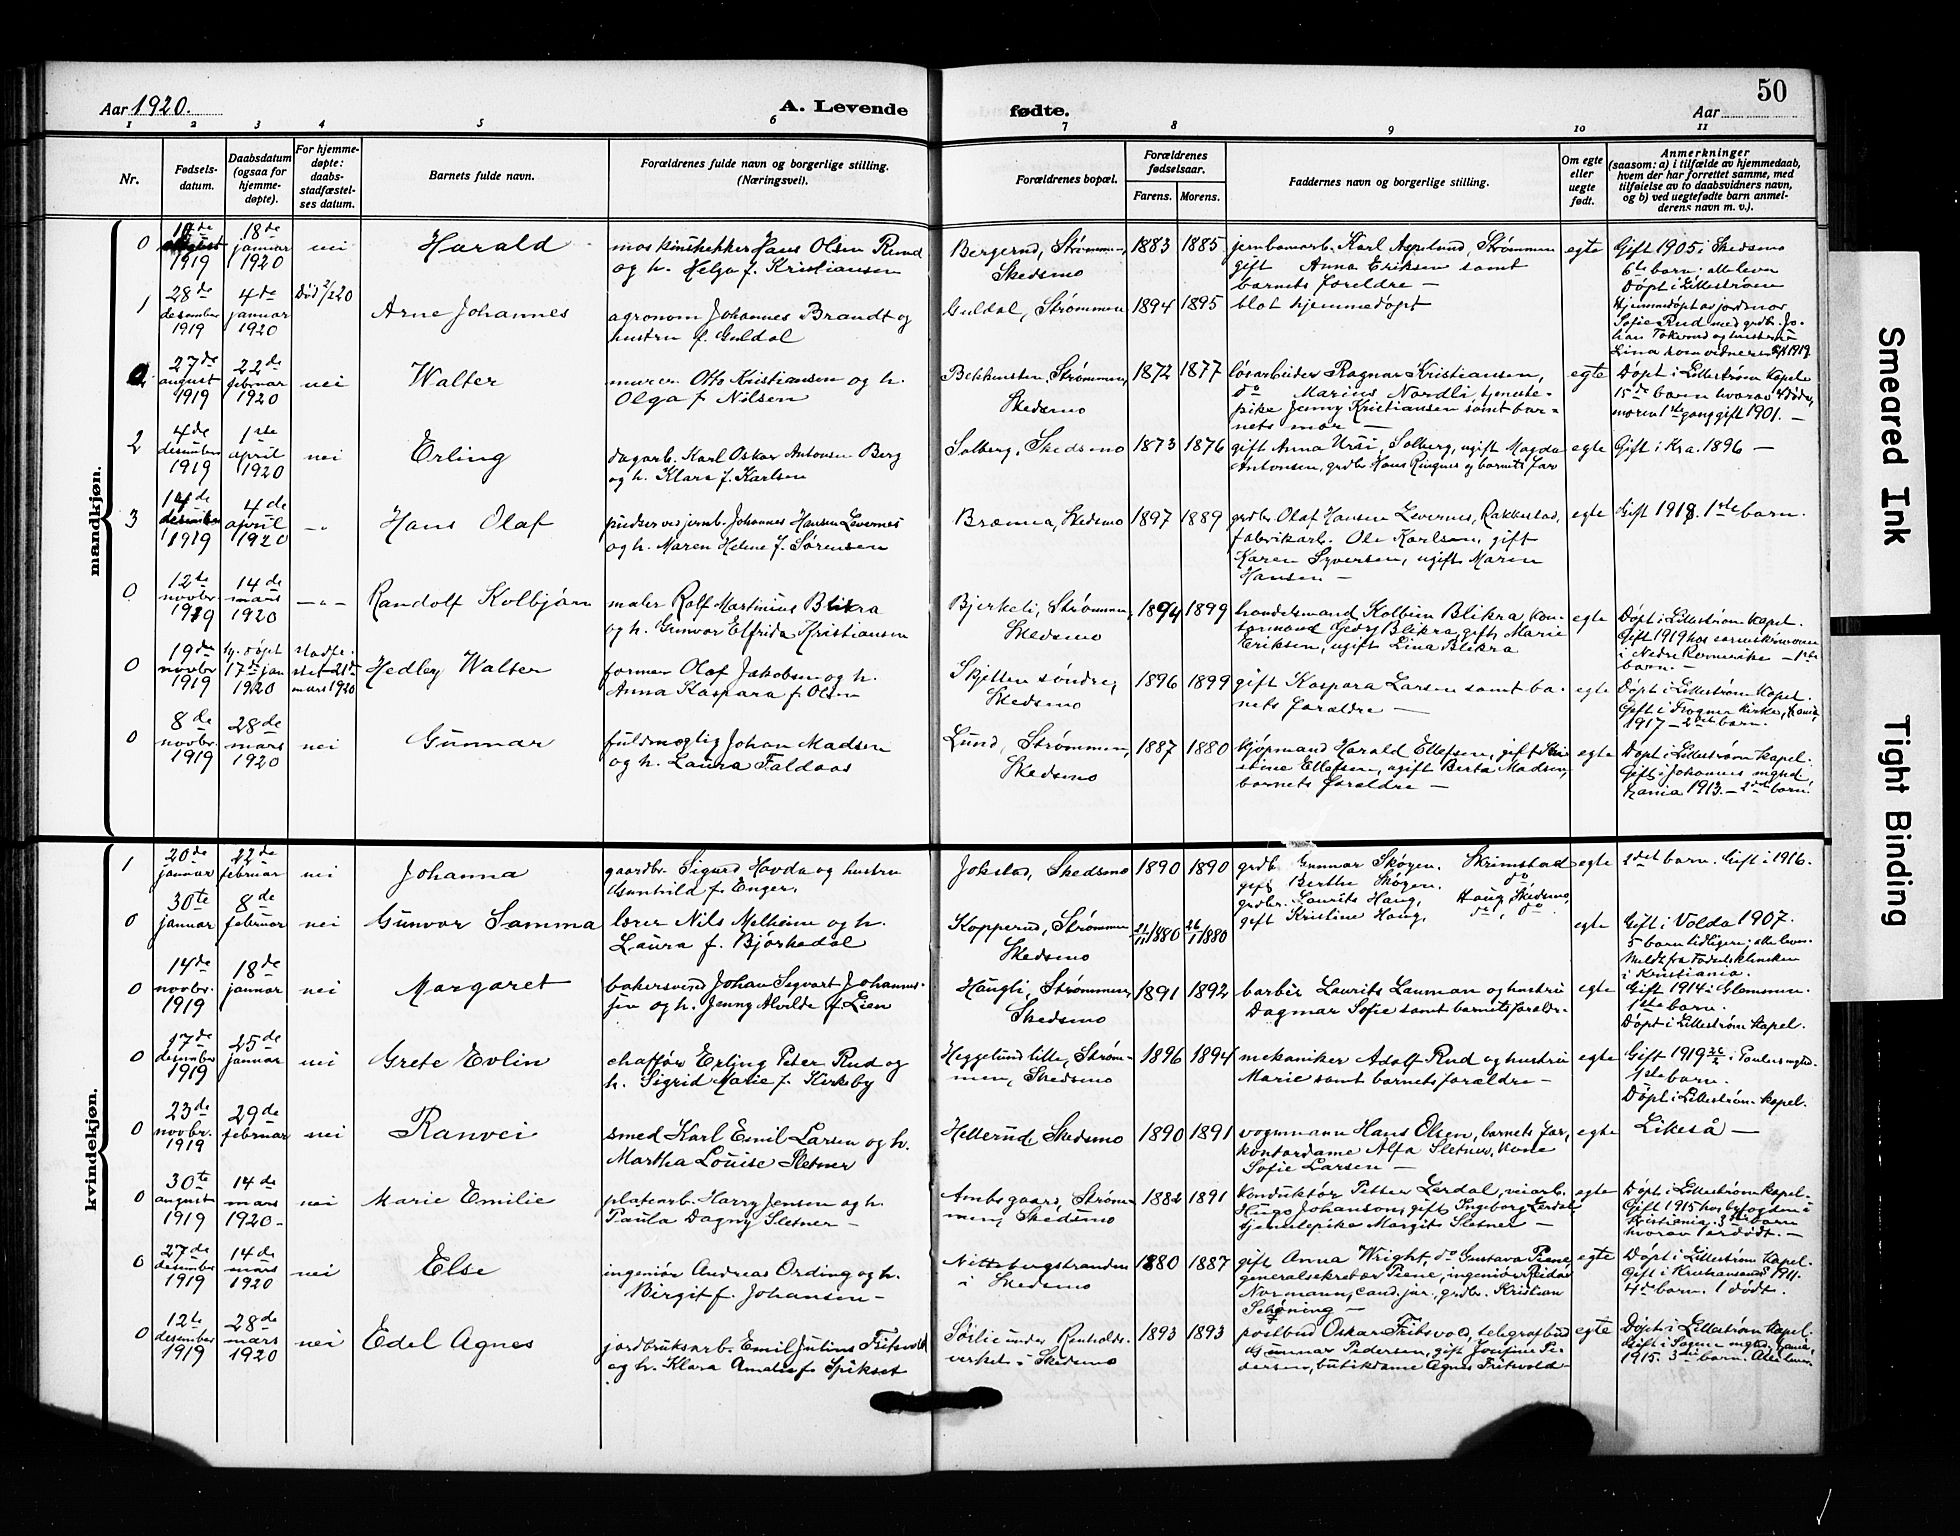 50
Aar 1920.
A. Levende
fødte.
Aar
1 2 3 4 5 6 7 8 9 10 11
Nr.
Fødsels-
datum.
Daabsdatum
(ogsaa for
hjemme-
døpte).
For hjemme-
døpte:
daabs-
stadfæstel-
ses datum.
Barnets fulde navn.
Forældrenes fulde navn og borgerlige stilling.
(Næringsvei).
Forældrenes bopæl.
Forældrenes
fødselsaar.
Farens. Morens.
Faddernes navn og borgerlige stilling.
Om egte
eller
uegte
født.
Anmerkninger
(saasom: a) i tilfælde av hjemmedaab,
hvem der har forrettet samme, med
tilføielse av to daabsvidners navn,
og b) ved uegtefødte barn anmel-
derens navn m. v.).
mandkjøn.
0
august
1919
18de
januar
1920
nei
Harald
Hans Olsen Rund
og h. Helga f. Kristiansen
Bergerud, Strømmen,
Skedsmo
1883 1885
jernbanearb. Karl Aspelund, Strømmen
gift Anna Eriksen samt
barnets foreldre —
egte
Gift 1905 i Skedsmo
6te barn: alle lever
Døpt i Lillestrøm
1
28de
desember
1919
4de
januar
1920
Død 2/1 20
Arne Johannes
agronom Johannes Brandt og
hustru f. Guldal
Guldal, Strømmen
1894 1895
blot hjemmedøpt —
Hjemmedøpt av jordmor
Sofie Rud med grdbr. Jo-
han Tokerud og hustru
Lina som vidner 1919
27de
august
1919
22de
februar
1920
nei
Walter
murer Otto Kristiansen og h.
Olga f. Nilsen
Bekkhusten, Strømmen,
Skedsmo
1872 1877
løsarbeider Ragnar Kristiansen,
do Marius Nordli, tjeneste-
pike Jenny Kristiansen samt bar-
nets mor —
egte
Døpt i Lillestrøm Kapel
15de barn hvorav 4 døde,
moren 1ste gang gift 1901. —
2
4de
desember
1919
1ste
april
1920
nei
Erling
dagarb. Karl Oskar Antonsen Berg
og h. Klara f. Karlsen
Solberg, Skedsmo
1873 1876
gift Anna Ursi, Solberg, ugift Magda
Antonsen, grdbr. Hans Ringnes og barnets far
egte
Gift i Kra. 1896 —
3
14de
desember
1919
4de
april
1920
–"
Hans Olaf
pudser ved jernb. Johannes Hansen Levernes
og h. Maren Helene f. Sørensen
Bræmna, Skedsmo
1897 1889
grdbr. Olaf Hansen Levernes, Rakkestad,
fabrikarb. Ole Karlsen, gift
Karen Syversen, ugift Maren
Hansen —
egte
Gift 1918. 1ste barn.
0
12te
novbr.
1919
14de
mars
1920
–"–
Randolf Kolbjørn
maler Rolf Martinius Blikra
og h. Gunvor Elfrida Kristiansen
Bjerkeli, Strømmen,
Skedsmo
1894 1899
handelsmand Kolbein Blikra, kon-
tormand Georg Blikra, gift Marie
Eriksen, ugift Lina Blikra
egte
Døpt i Lillestrøm Kapel.
Gift 1919 hos sorenskriveren
i Nedre Romerike — 1ste
barn. —
0
19de
novbr
1919
hj. døpt
17de jan
1920
stadfe-
stet 21de
mars 1920
Hedley Walter
former Olaf Jakobsen og h.
Anna Kaspara f. Olsen
Skjetten søndre,
Skedsmo
1896 1899
gift Kaspara Larsen samt ba-
nets foreldre —
egte
Døpt i Lillestrøm Kapel.
Gift i Frogner kirke, Kania,
1917 — 2det barn.
0
8de
novbr.
1919
28de
mars
1920
nei
Gunnar
fuldmægtig Johan Madsen
og h. Laura Faldaas
Lund, Strømmen,
Skedsmo
1887 1880
kjøpmand Harald Ellefsen, gift Kri-
stine Ellefsen, ugift Berta Madsen,
barnets foreldre —
egte
Døpt i Lillestrøm Kapel.
Gift i Johannes mghd,
Kania 1913. — 2det barn.
kvindekjøn.
1
20de
januar
22de
februar
nei
Johanna
gaardbr. Sigurd Hovda og hustru
Gunhild f. Enger.
Jokstad, Skedsmo
1890 1890
grdbr. Gunnar Skøgen, Skrimstad
gift Berthe Skøgen, do
grdbr. Laurits Haug, Haug, Skedsmo,
gift Kristine Haug, do, do
egte
2det barn. Gift i 1916.
0
30te
januar
8de
februar
nei
Gunvor Samma
lærer Nils Melheim og h.
Laura f. Bjørkedal
Kopperud, Strømmen
Skedsmo
1880 1880
egte
Gift i Volda 1907.
5 barn tidligere; alle lever.
Meldt fra Fødselsklinikken
i Kristiania.
0
14de
novbr.
1919
18de
januar
nei
Margaret
bakersvend Johan Sigvart Johannes-
sen og h. Jenny Alvilde f. Lien
Haugli, Strømmen,
Skedsmo
1891 1892
barbér Laurits Lauman og hustru
Dagmar Sofie samt barnets foreldr-
egte
Gift 1914 i Glemmen.
1ste barn.
Døpt i Lillestrøm Kapel.
0
17de
desember
1919
25de
januar
nei
Grete Evlin
chaffør Erling Peter Rud og
h. Sigrid Marie f. Kirkeby
Heggelund lille, Strøm-
men, Skedsmo
1896 1894
mekaniker Adolf Rud og hustru
Marie samt barnets foreldre —
egte
Gift 1919 i Paulus mghd.
1ste barn.
Døpt i Lillestrøm Kapel.
0
23de
novbr.
1919
29de
februar
nei
Ranvei
smed Karl Emil Larsen og h.
Martha Louise Sletner
Hellerud, Skedsmo
1890 1891
vognmann Hans Olsen, barnets far,
kontordame Alfa Sletner, Kone
Sofie Larsen —
egte
Likeså —
0
30te
august
1919
14de
mars
1920 –
nei
Marie Emilie
platearb. Harry Jensen og h.
Paula Dagny Sletner —
Ambsgaard, Strøm-
men, Skedsmo
1882 1891
Konduktør Petter Lerdal, veiarb.
Hugo Johanson, gift Ingeborg Lerdal
tjenestepike Margit Sletner —
egte
Døpt i Lillestrøm Kapel.
Gift 1915 hos byfogden i
Kristiania, 3die barn
hvorav 1 er dødt. —
0
27de
desember
1919
14de
mars
1920
nei
Else
ingeniør Andreas Ording og h.
Birgit f. Johansen —
Nittebergstranden
i Skedsmo
1880 1887
gift Anna Wright, do Gustava Piene,
generalsekretær Piene, ingeniør Reidar
Normann, cand. jur., grdbr. Kristian
Schøning —
egte
Døpt i Lillestrøm Kapel.
Gift i Kristiansand 1911.
4de barn. 1 dødt.
0
12te
desember
1919
28de
mars
1920
nei
Edel Agnes
jordbruksarb. Emil Julius Fritsvold
og h. Klara Amalie f. Spikset
Sørlie under Renholds-
verket i Skedsmo
1893 1893
postbud Oskar Fritsvold, telegrafbud
Gunnar Pedersen, gift Josefine Pe-
dersen, butikdame Agnes Fritsvold –
egte
Døpt i Lillestrøm Kapel.
Gift i Sogne mghd, Kania,
1915. 3die barn. Alle lever.
Smeared Ink
Tight Binding